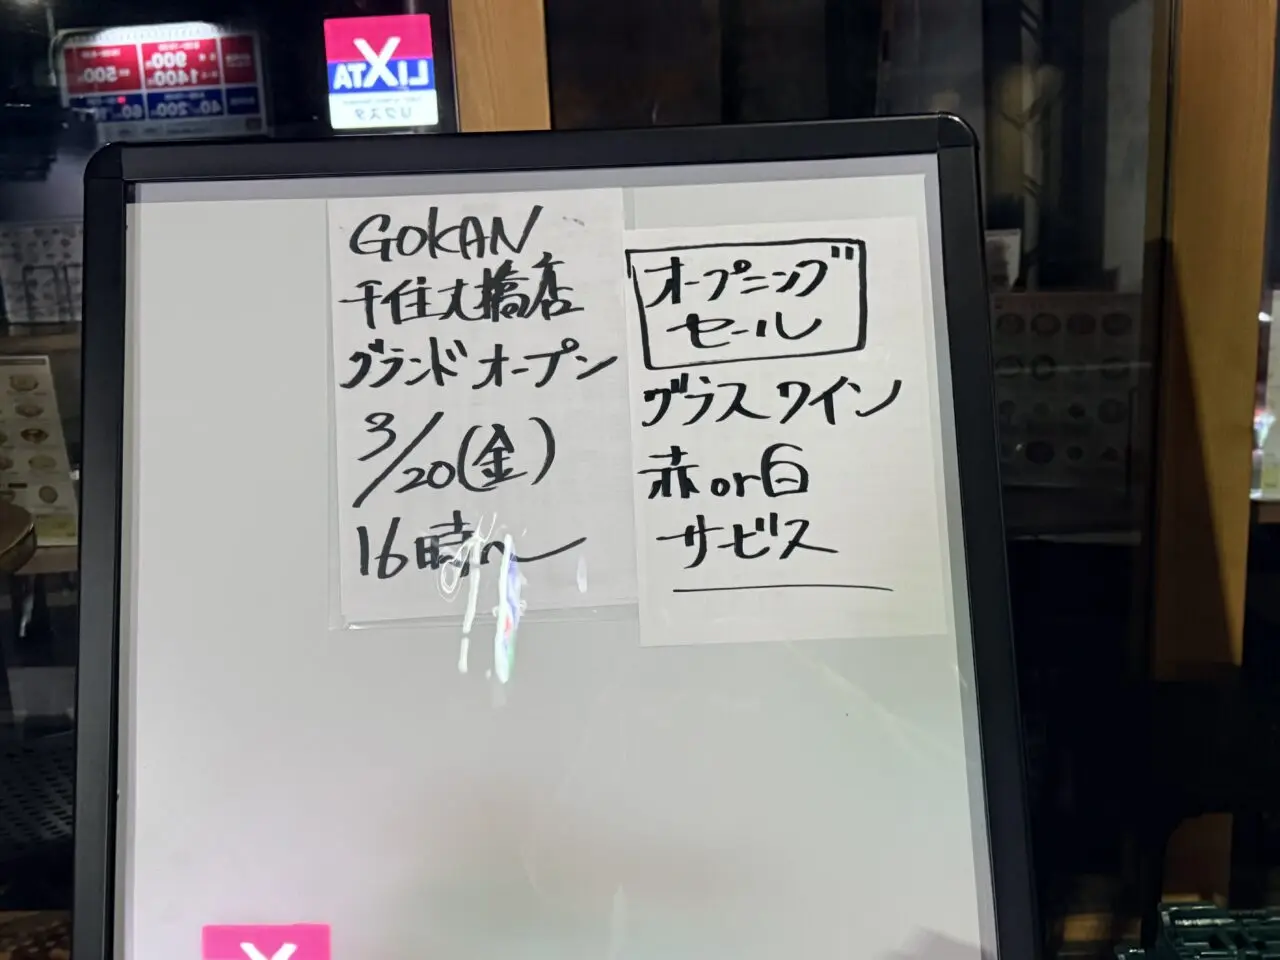 GOKAN
千住大橋店
グランドオープン
3/20(金)
16時〜
オープニング
セール
グラスワイン
赤or白
サービス
LIXTA
リクスタ
900
1400
500
40
200
60
X